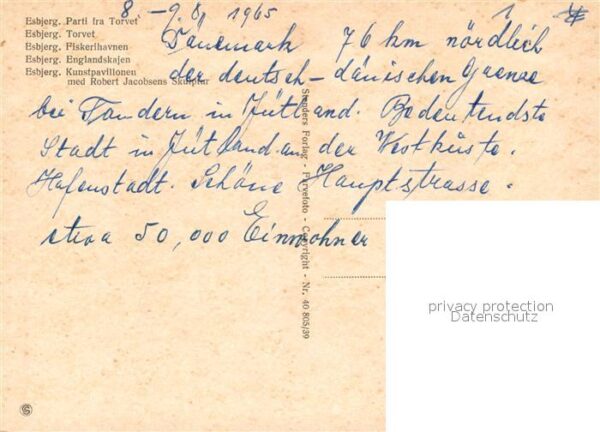 8.-9.8. 1965
Esbjerg. Parti fra Torvet
Esbjerg. Torvet
Esbjerg. Fiskerihavnen
Esbjerg. Englandskajen
Esbjerg. Kunstpavillonen
med Robert Jacobsens Skulptur
Dänemark 76 km nördlich
der deutsch-dänischen Grenze
bei Tondern in Jütland. Bedeutendste
Stadt in Jütland an der Westküste.
Hafenstadt. Schöne Hauptstrasse.
etwa 50,000 Einwohner
Stenders Forlag - Farvefoto - Copyright - Nr. 40 805/39
privacy protection
Datenschutz